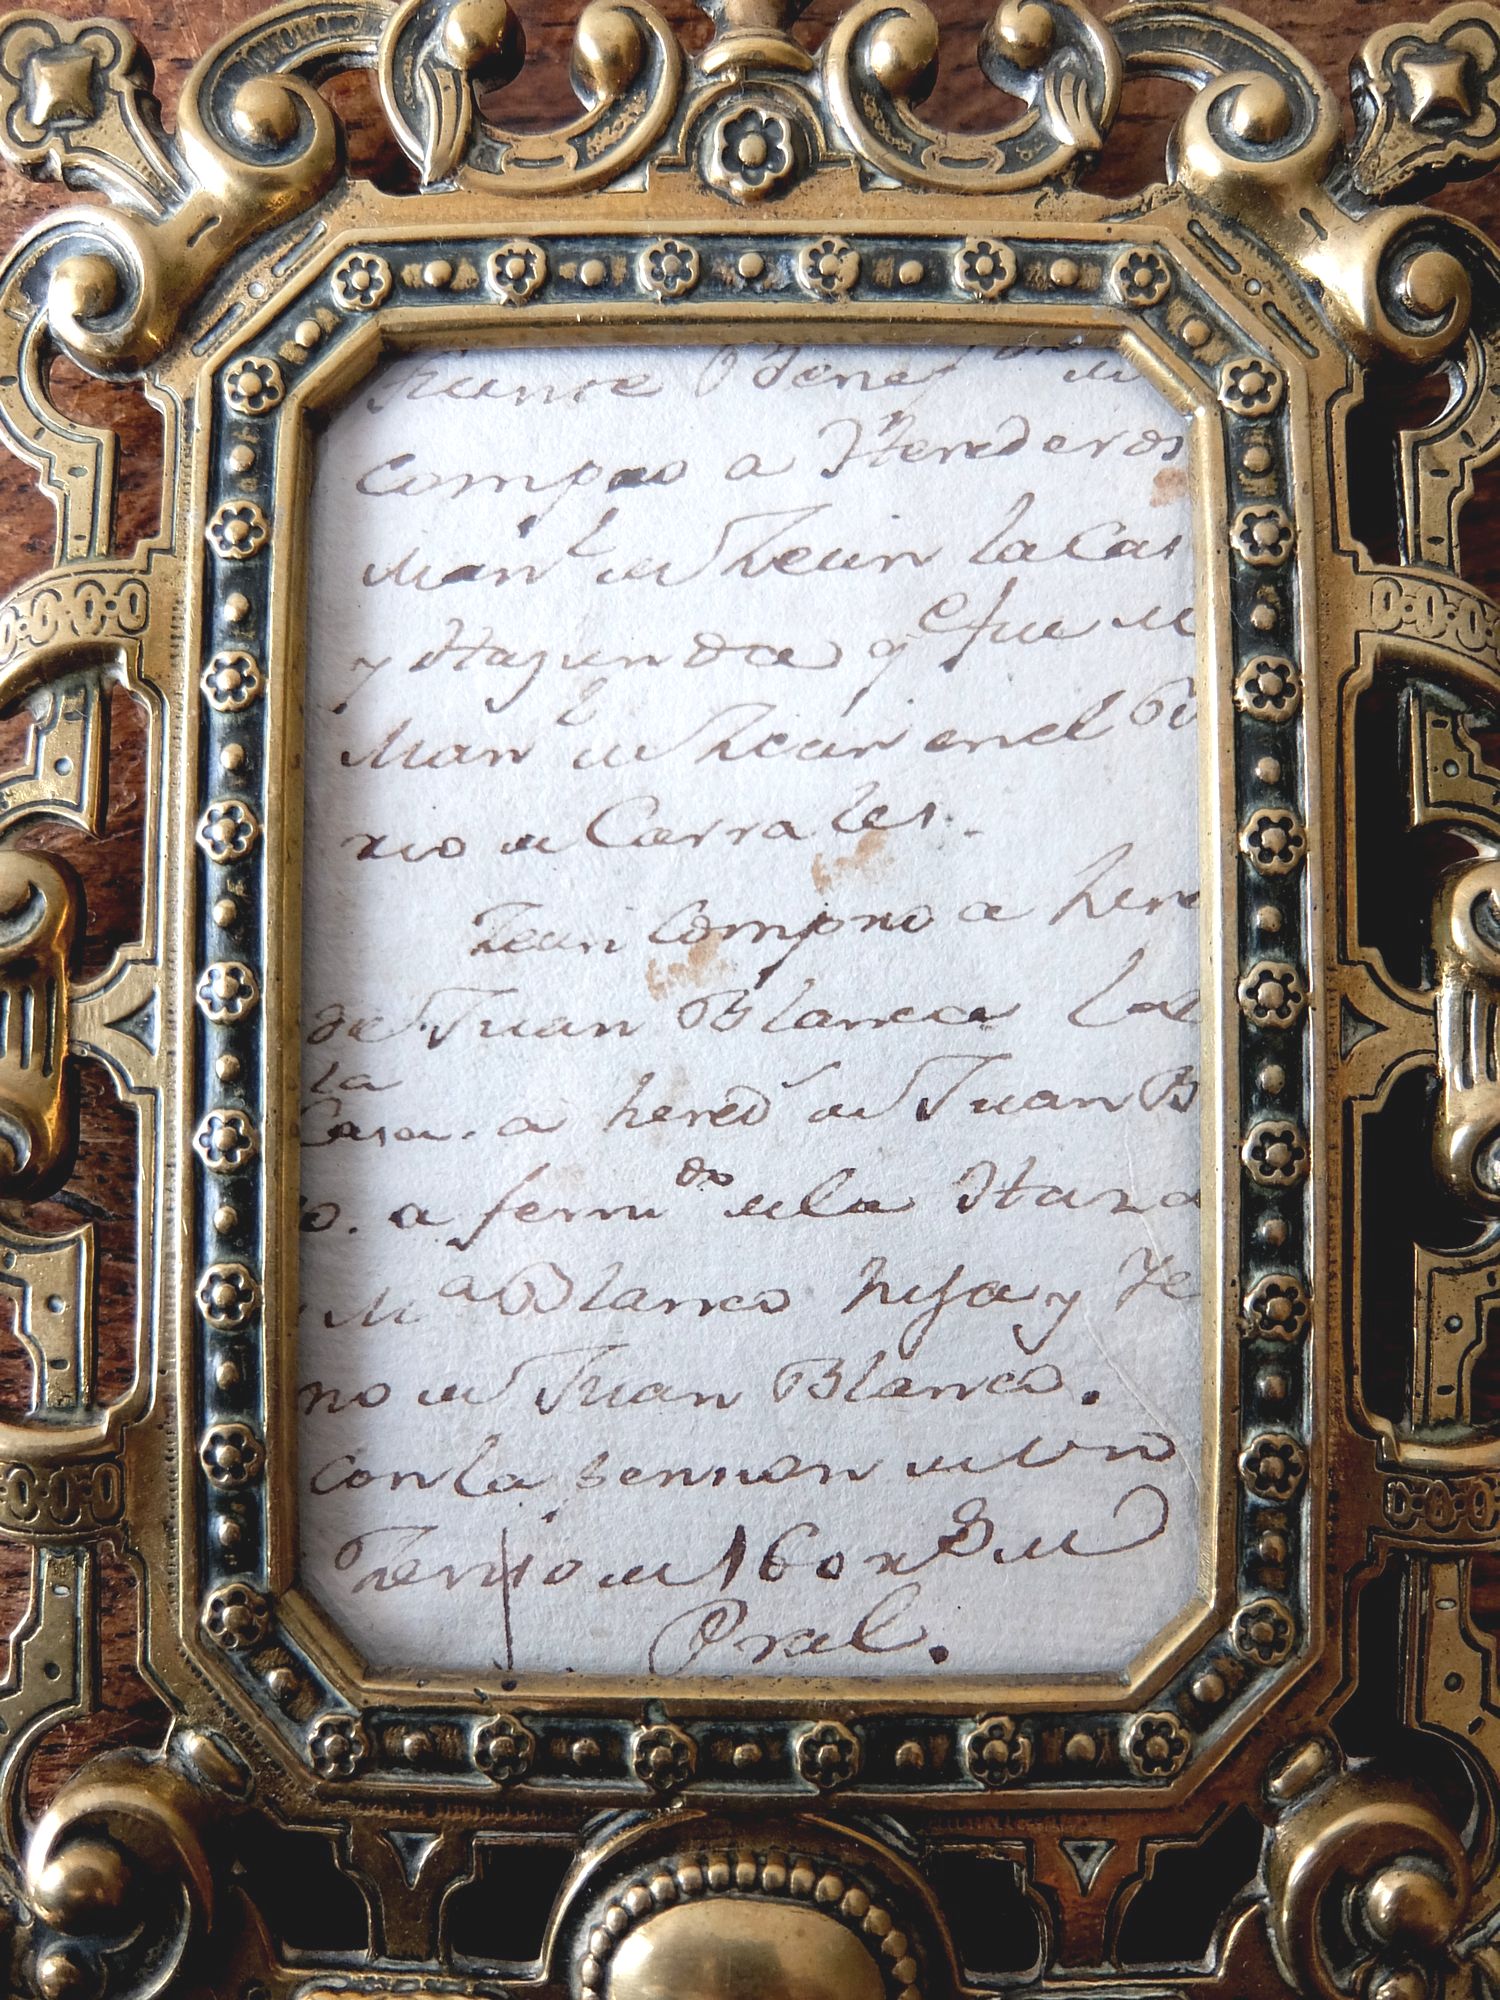 compro a Herederos
Man.l de Leuin la Cas
y Hazienda q.e fue de
Man.l de Leuin en el Ba
rrio de Carrales.
Leuin Compro a here
de Juan Blanco
la
Casa. a hered.s de Juan B
o. a fern.do de la Haza
M.a Blanco hija y Ye
no de Juan Blanco.
con la pension de un
de 160 r.s de
Pral.